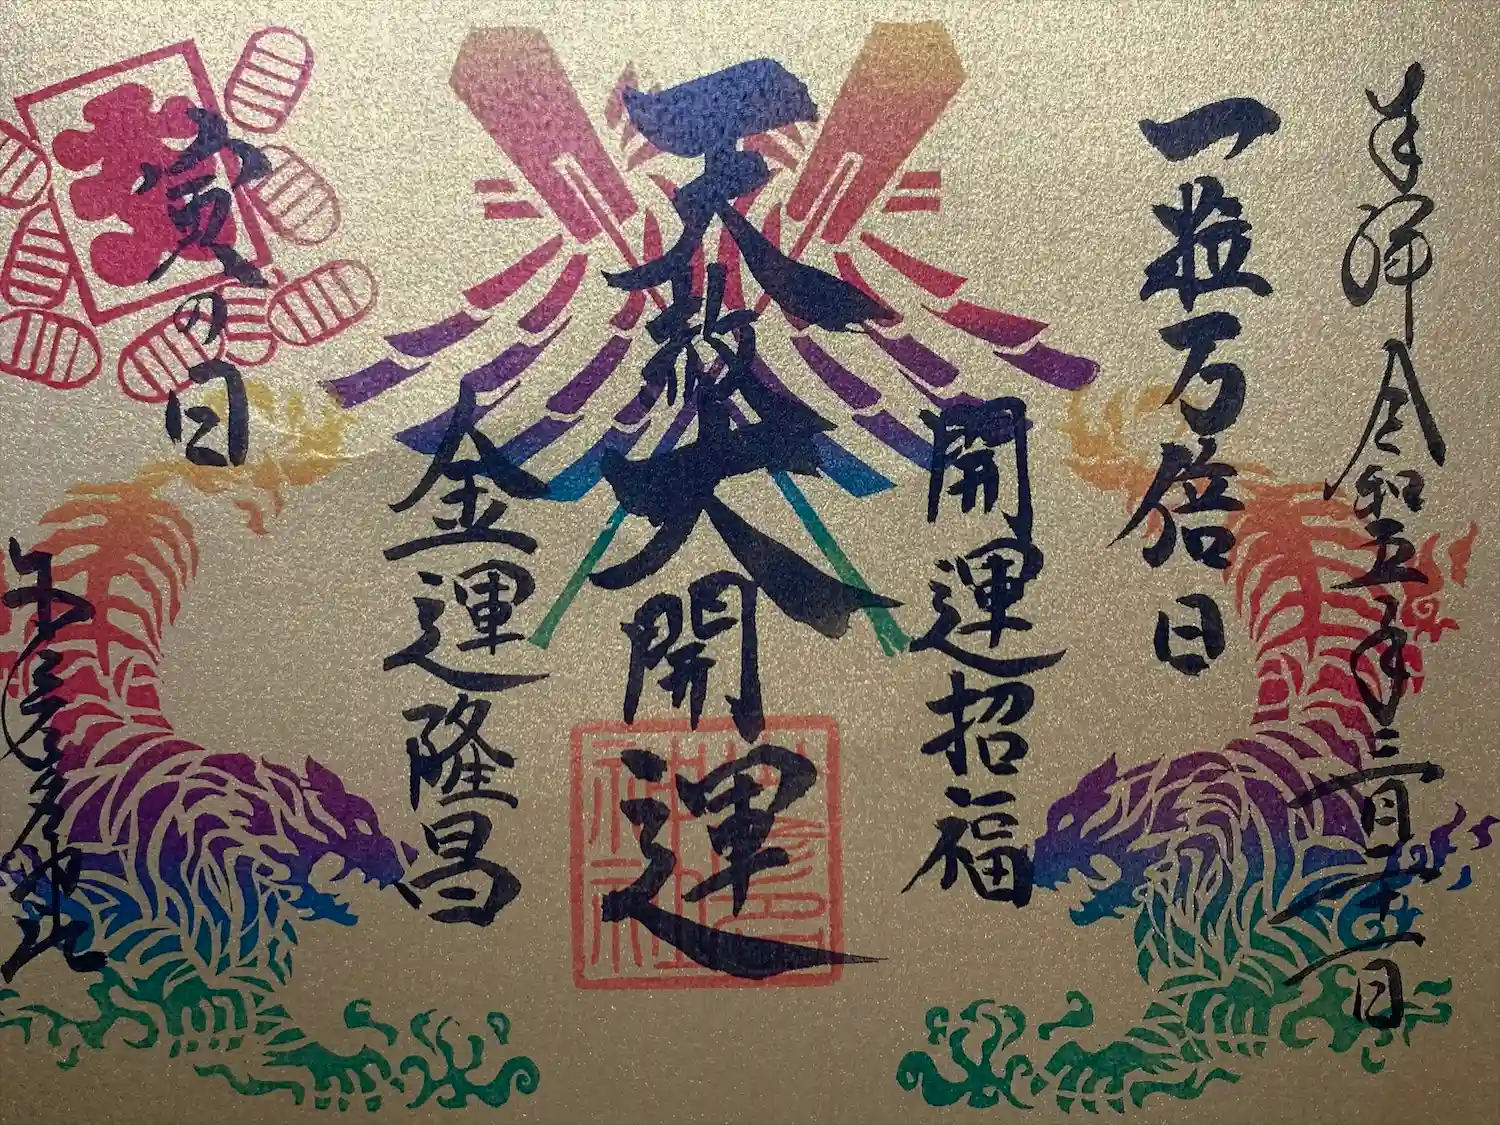 奉拝 令和五年三月二十一日
一粒万倍日
開運招福
天赦大開運
金運隆昌
寅の日